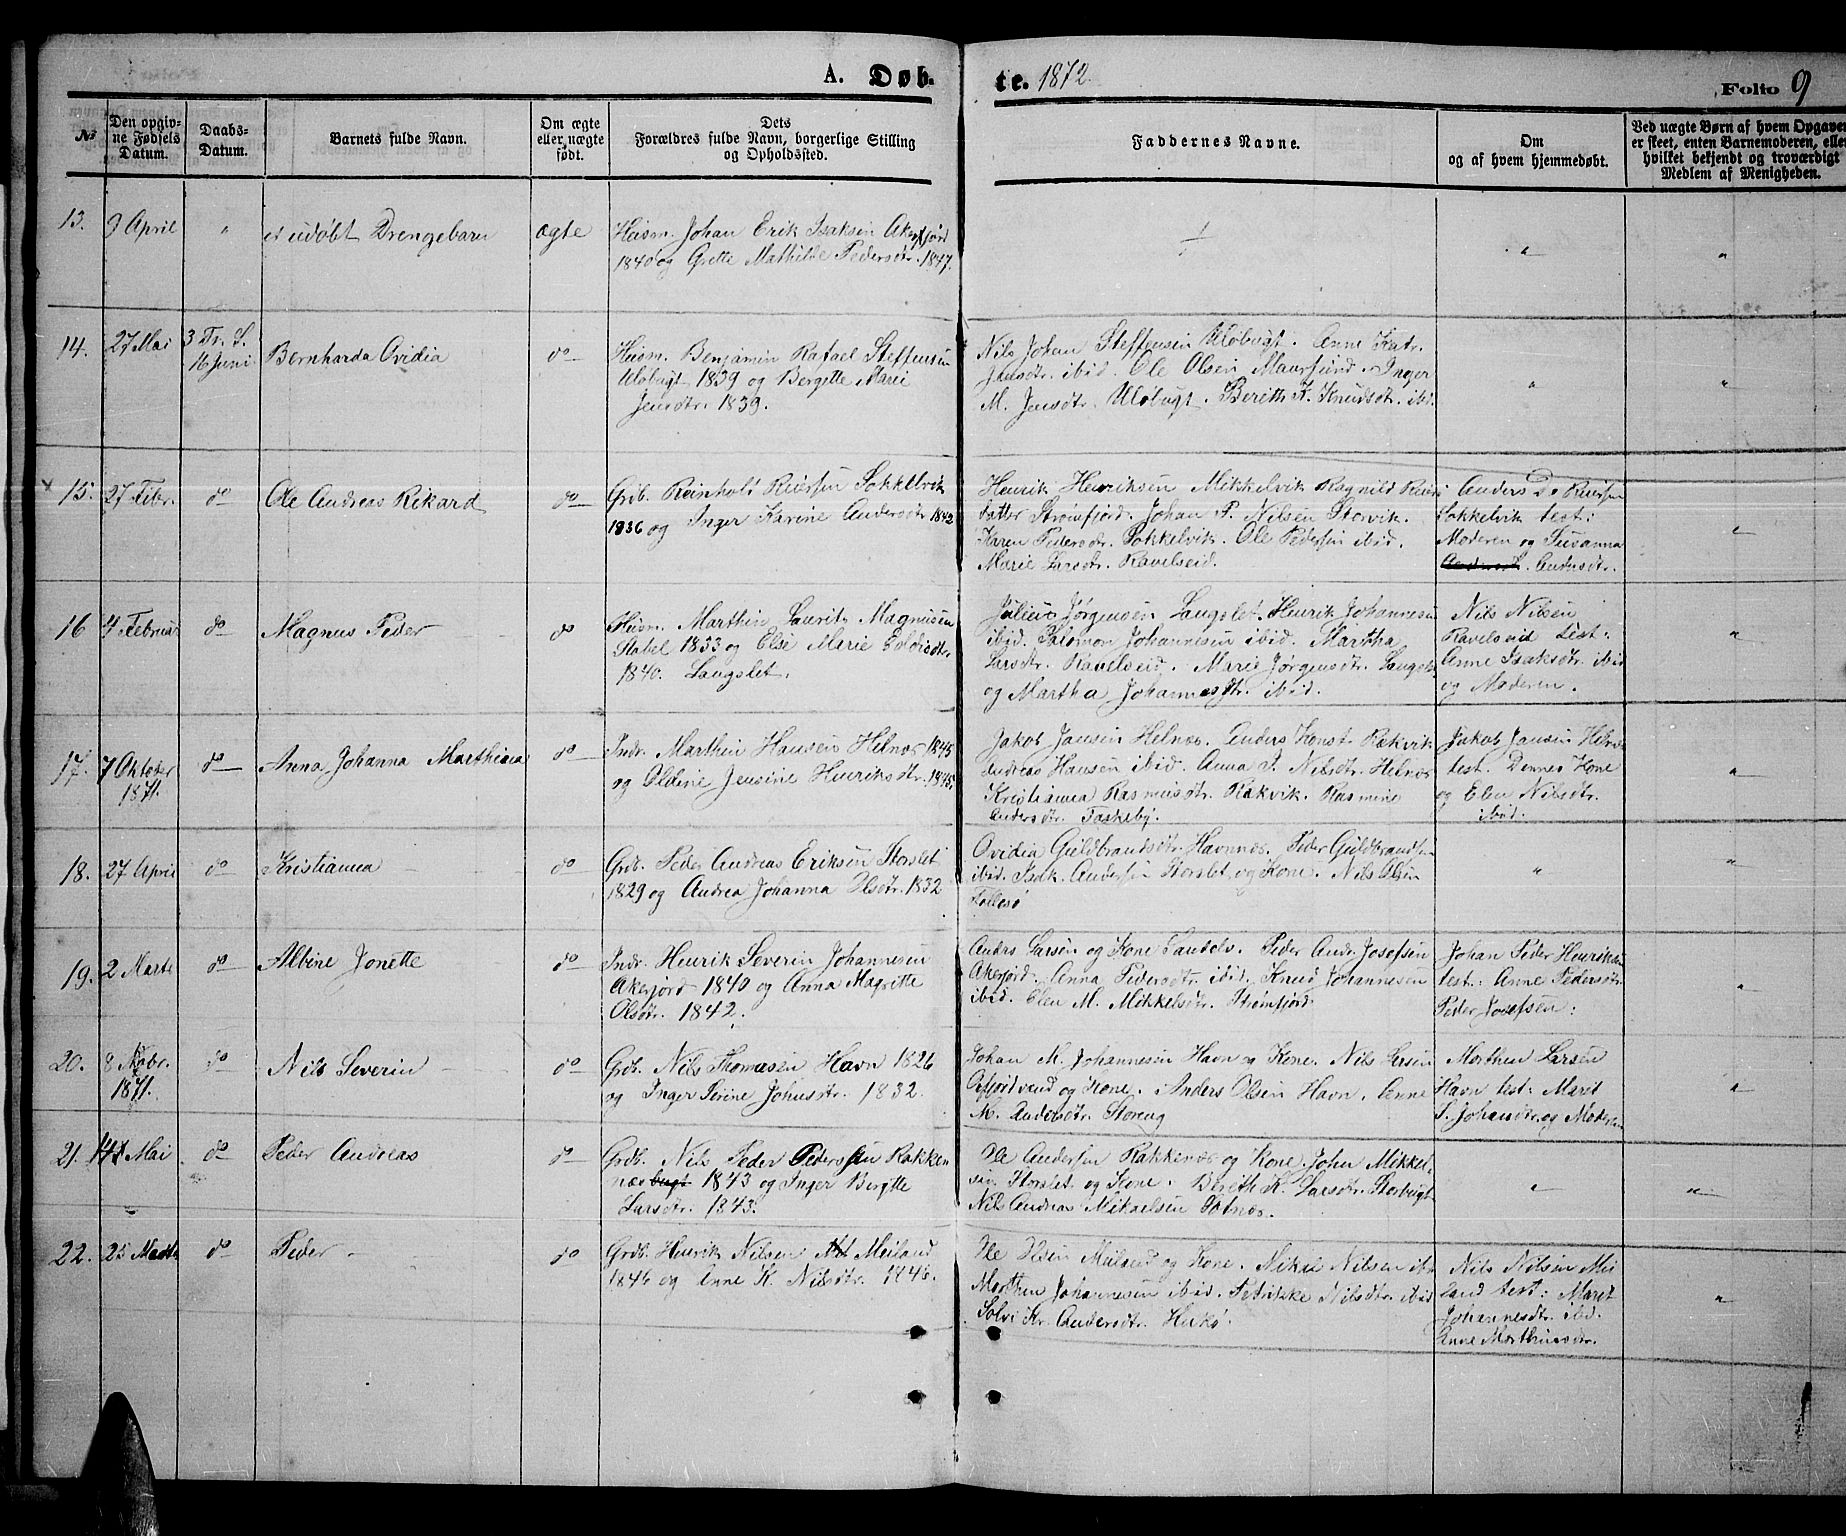 A. Døb- te. 1872. Folio 9
No
Den opgiv-
ne Fødsels
Datum.
Daabs-
Datum.
Barnets fulde Navn.
Om ægte
eller uægte
født.
Dets
Forældres fulde Navn, borgerlige Stilling
og Opholdssted.
Faddernes Navne.
Om
og af hvem hjemmedøbt.
Ved uægte Børn af hvem Opgaven
er skeet, enten Barnemoderen, eller
hvilket bekjendt og troværdigt
Medlem af Menigheden.
13. 9 April " et udøbt Drengebarn ægte
Huusm. Johan Erik Isaksen Akerfjord
1840 og Grette Mathilde Pedersdtr. 1847.
14. 27 Mai
3 Tr. S.
16 Juni
Bernharda Ovidia do
Huusm. Benjamin Rafael Steffensen
Uløbugt 1839 og Bergette Marie
Jensdtr. 1839.
Nils Johan Steffensen Uløbugt. Anne Katr.
Jensdtr. ibid. Ole Olsen Maursund. Inger
M. Jensdtr. Uløbugt. Berith K. Knudsdtr. ibid.
15. 27 Febr. do Ole Andreas Rikard do
Grdb. Reinhold Riersen Sokkelvik
1836 og Inger Karine Andersdtr 1842
Henrik Henriksen Mikkelvik Ragnild Riers
datter Strømfjord. Johan P. Nilsen Storvik.
Karen Pedersdtr. Sokkelvik. Ole Pedersen ibid.
Marie Larsdtr. Ravelseid.
Anders Riersen
Sokkelvik test:
Moderen og Susanna
Andersdtr.
16 4 Februar do Magnus Peder do
Huusm. Marthin Lauritz Magnusen
Stabel 1833 og Else Marie
1840. Langslet.
Julius Jørgensen Langslet. Henrik Johannesen
ibid. Salomon Johannesen ibid. Martha
Larsdtr. Ravelseid. Marie Jørgensdtr. Langslet
og Martha Johannesdtr. ibid.
Nils Nilsen
Ravelseid test:
Anne Isaksdtr. ibid
og Moderen.
17. 7 Oktober
1871.
do Anna Johanna Marthiana do
Indr. Marthin Hansen Helnæs 1845
og Oldine Jensine Henriksdtr. 1845.
Jakob Jansen Helnæs. Anders Konst. Rakvik
Andreas Hansen ibid. Anna J. Nilsdtr. Helnæs
Kristianna Rasmusdtr. Rakvik. Rasmine
Andersdtr. Taskeby.
Jakob Jansen Helnæs
test. Dennes Kone
og Elen Nilsdtr.
ibid.
18. 27 April do Kristianna do
Grdb. Peder Andreas Eriksen Storslet
1829 og Andrea Johanna Olsdtr. 1832
Ovidia Guldbrandsdtr. Havnnæs. Peder Guldbrandsen
ibid. Isak Andersen Storslet og Kone. Nils Olsen
Follesø
19. 2 Marts do Albine Jonette do
Indr. Henrik Severin Johannesen
Akerfjord 1840 og Anna Magritte
Olsdtr. 1842.
Anders Larsen og Kone Tandelv. Peder Andr. Josefsen
Akerfjord. Anna Pedersdtr. ibid. Knud Johannesen
ibid. Elen M. Mikkelsdtr. Strømfjord
Johan Peder Henriksen
test: Anne Pedersdtr.
Peder Josefsen:
20. 8 Novbr.
1871.
do Nils Severin do
Grdb. Nils Thomasen Havn 1826
og Inger Serine Johnsdtr. 1832.
Johan M. Johannesen Havn og Kone. Nils Larsen
Oxfjordvand og Kone. Anders Olsen Havn. Anne
M. Andersdtr. Storeng
Morthen Larsen
Havn test: Marit
S. Johansdtr. og Moderen
21. 14 Mai do Peder Andreas do
Grdb. Nils Peder Pedersen Rakken
næs bugt 1843 og Inger Bergitte
Larsdtr. 1843.
Ole Andersen Rakkenæs og Kone. John Mikkel-
sen Storslet og Kone. Berith K. Larsdtr. Storbugt
Nils Andreas Mikkelsen
22. 25 Marts do Peder do
Grdb. Henrik Nilsen Meiland
1846 og Anne K. Nilsdtr. 1846.
Ole Olsen Meiland og Kone. Mikal Nilsen ibid
Morthen Johannesen ibid. Petrikke Nilsdtr. ibid
Solvi Kr. Andersdtr. Hukø.
Nils Nilsen Mei
land test: Maret
Johannesdtr. ibid.
Anne Morthensdtr.